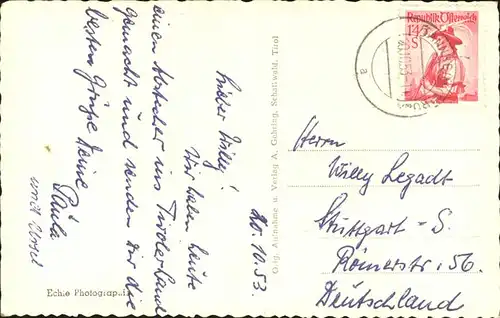 20.10.53.
Lieber Willy!
Wir haben heute
einen Abstecher ins Tirolerland
gemacht und senden Dir die
besten Grüße Deine
Paula
und
Echte Photographie
Orig. Aufnahme u. Verlag A. Gehring, Schattwald, Tirol
Republik Österreich
1.45
S
20.10.53
a
Herrn
Willy Legadt
Stuttgart - S.
Römerstr. 56
Deutschland